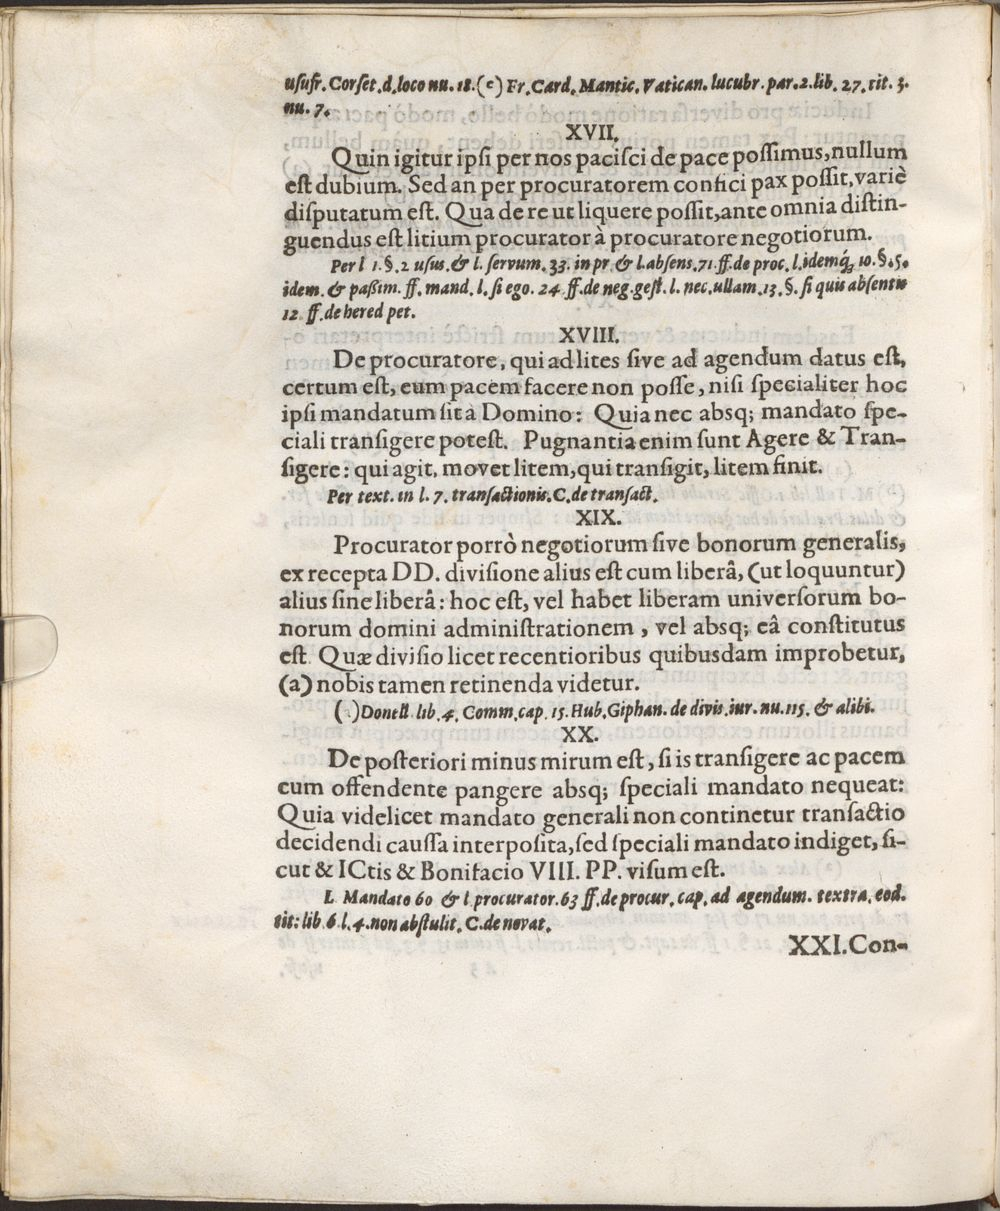 uſufr. Corſet. d. loco nu. 18. (c) Fr. Card. Mantic. Vatican. lucubr. par. 2. lib. 27. tit. 3.
nu. 7.
XVII.
Quin igitur ipſi per nos paciſci de pace poſſimus, nullum
eſt dubium. Sed an per procuratorem confici pax poſſit, variè
diſputatum eſt. Qua de re ut liquere poſſit, ante omnia diſtin-
guendus eſt litium procurator à procuratore negotiorum.
Per l 1. §. 2 uſus. & l. ſervum. 33. in pr. & l. abſens. 71. ff. de proc. l. idemq́; 10. §. 5.
idem. & paßim. ff. mand. l. ſi ego. 24 ff. de neg. geſt. l. nec. ullam. 13. §. ſi quis abſentis
12 ff. de hered pet.
XVIII.
De procuratore, qui ad lites ſive ad agendum datus eſt,
certum eſt, eum pacem facere non poſſe, niſi ſpecialiter hoc
ipſi mandatum ſit à Domino: Quia nec absq; mandato ſpe-
ciali tranſigere poteſt. Pugnantia enim ſunt Agere & Tran-
ſigere: qui agit, movet litem, qui tranſigit, litem finit.
Per text. in l. 7. tranſactionis. C. de tranſact.
XIX.
Procurator porrò negotiorum ſive bonorum generalis,
ex recepta DD. diviſione alius eſt cum liberâ, (ut loquuntur)
alius ſine liberâ: hoc eſt, vel habet liberam univerſorum bo-
norum domini adminiſtrationem, vel absq; eâ conſtitutus
eſt. Quæ diviſio licet recentioribus quibusdam improbetur,
(a) nobis tamen retinenda videtur.
(a) Donell. lib. 4. Comm. cap. 15. Hub. Giphan. de divis. iur. nu. 115. & alibi.
XX.
De poſteriori minus mirum eſt, ſi is tranſigere ac pacem
cum offendente pangere absq; ſpeciali mandato nequeat:
Quia videlicet mandato generali non continetur tranſactio
decidendi cauſſa interpoſita, ſed ſpeciali mandato indiget, ſi-
cut & ICtis & Bonifacio VIII. PP. viſum eſt.
L. Mandato 60 & l procurator. 63 ff. de procur. cap. ad agendum. textra. eod.
tit: lib. 6 l. 4. non abſtulit. C. de novat.
XXI. Con-